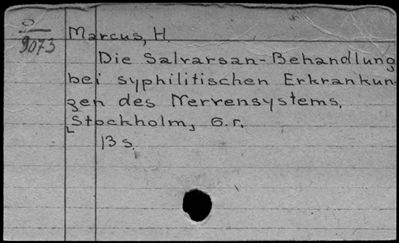 O
9073
Marcus, H.
Die Salvarsan-Behandlung
bei syphilitischen Erkrankun-
gen des Nervensystems.
Stockholm, G. r.
13 s.